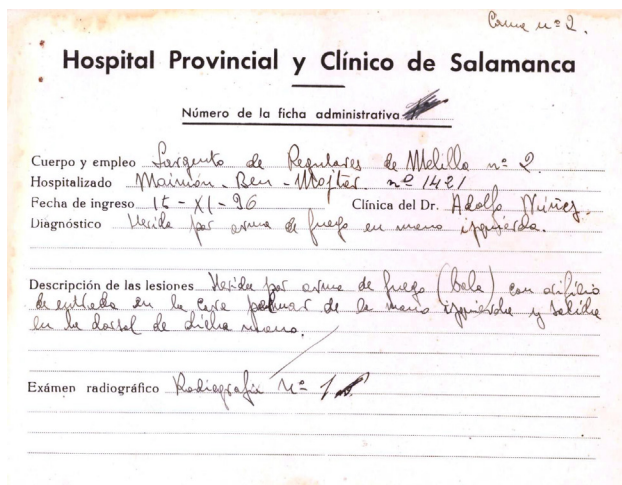 Cama nº 2.
Hospital Provincial y Clínico de Salamanca
Número de la ficha administrativa
Cuerpo y empleo Sargento de Regulares de Melilla nº 2.
Hospitalizado Maimón-Ben-Mojter. nº 1421
Fecha de ingreso 15-XI-36 Clínica del Dr. Adolfo Núñez.
Diagnóstico Herida por arma de fuego en mano izquierda.
Descripción de las lesiones Herida por arma de fuego (bala) con orificio
de entrada en la cara palmar de la mano izquierda y salida
en la dorsal de dicha mano.
Exámen radiográfico Radiografía Nº 1